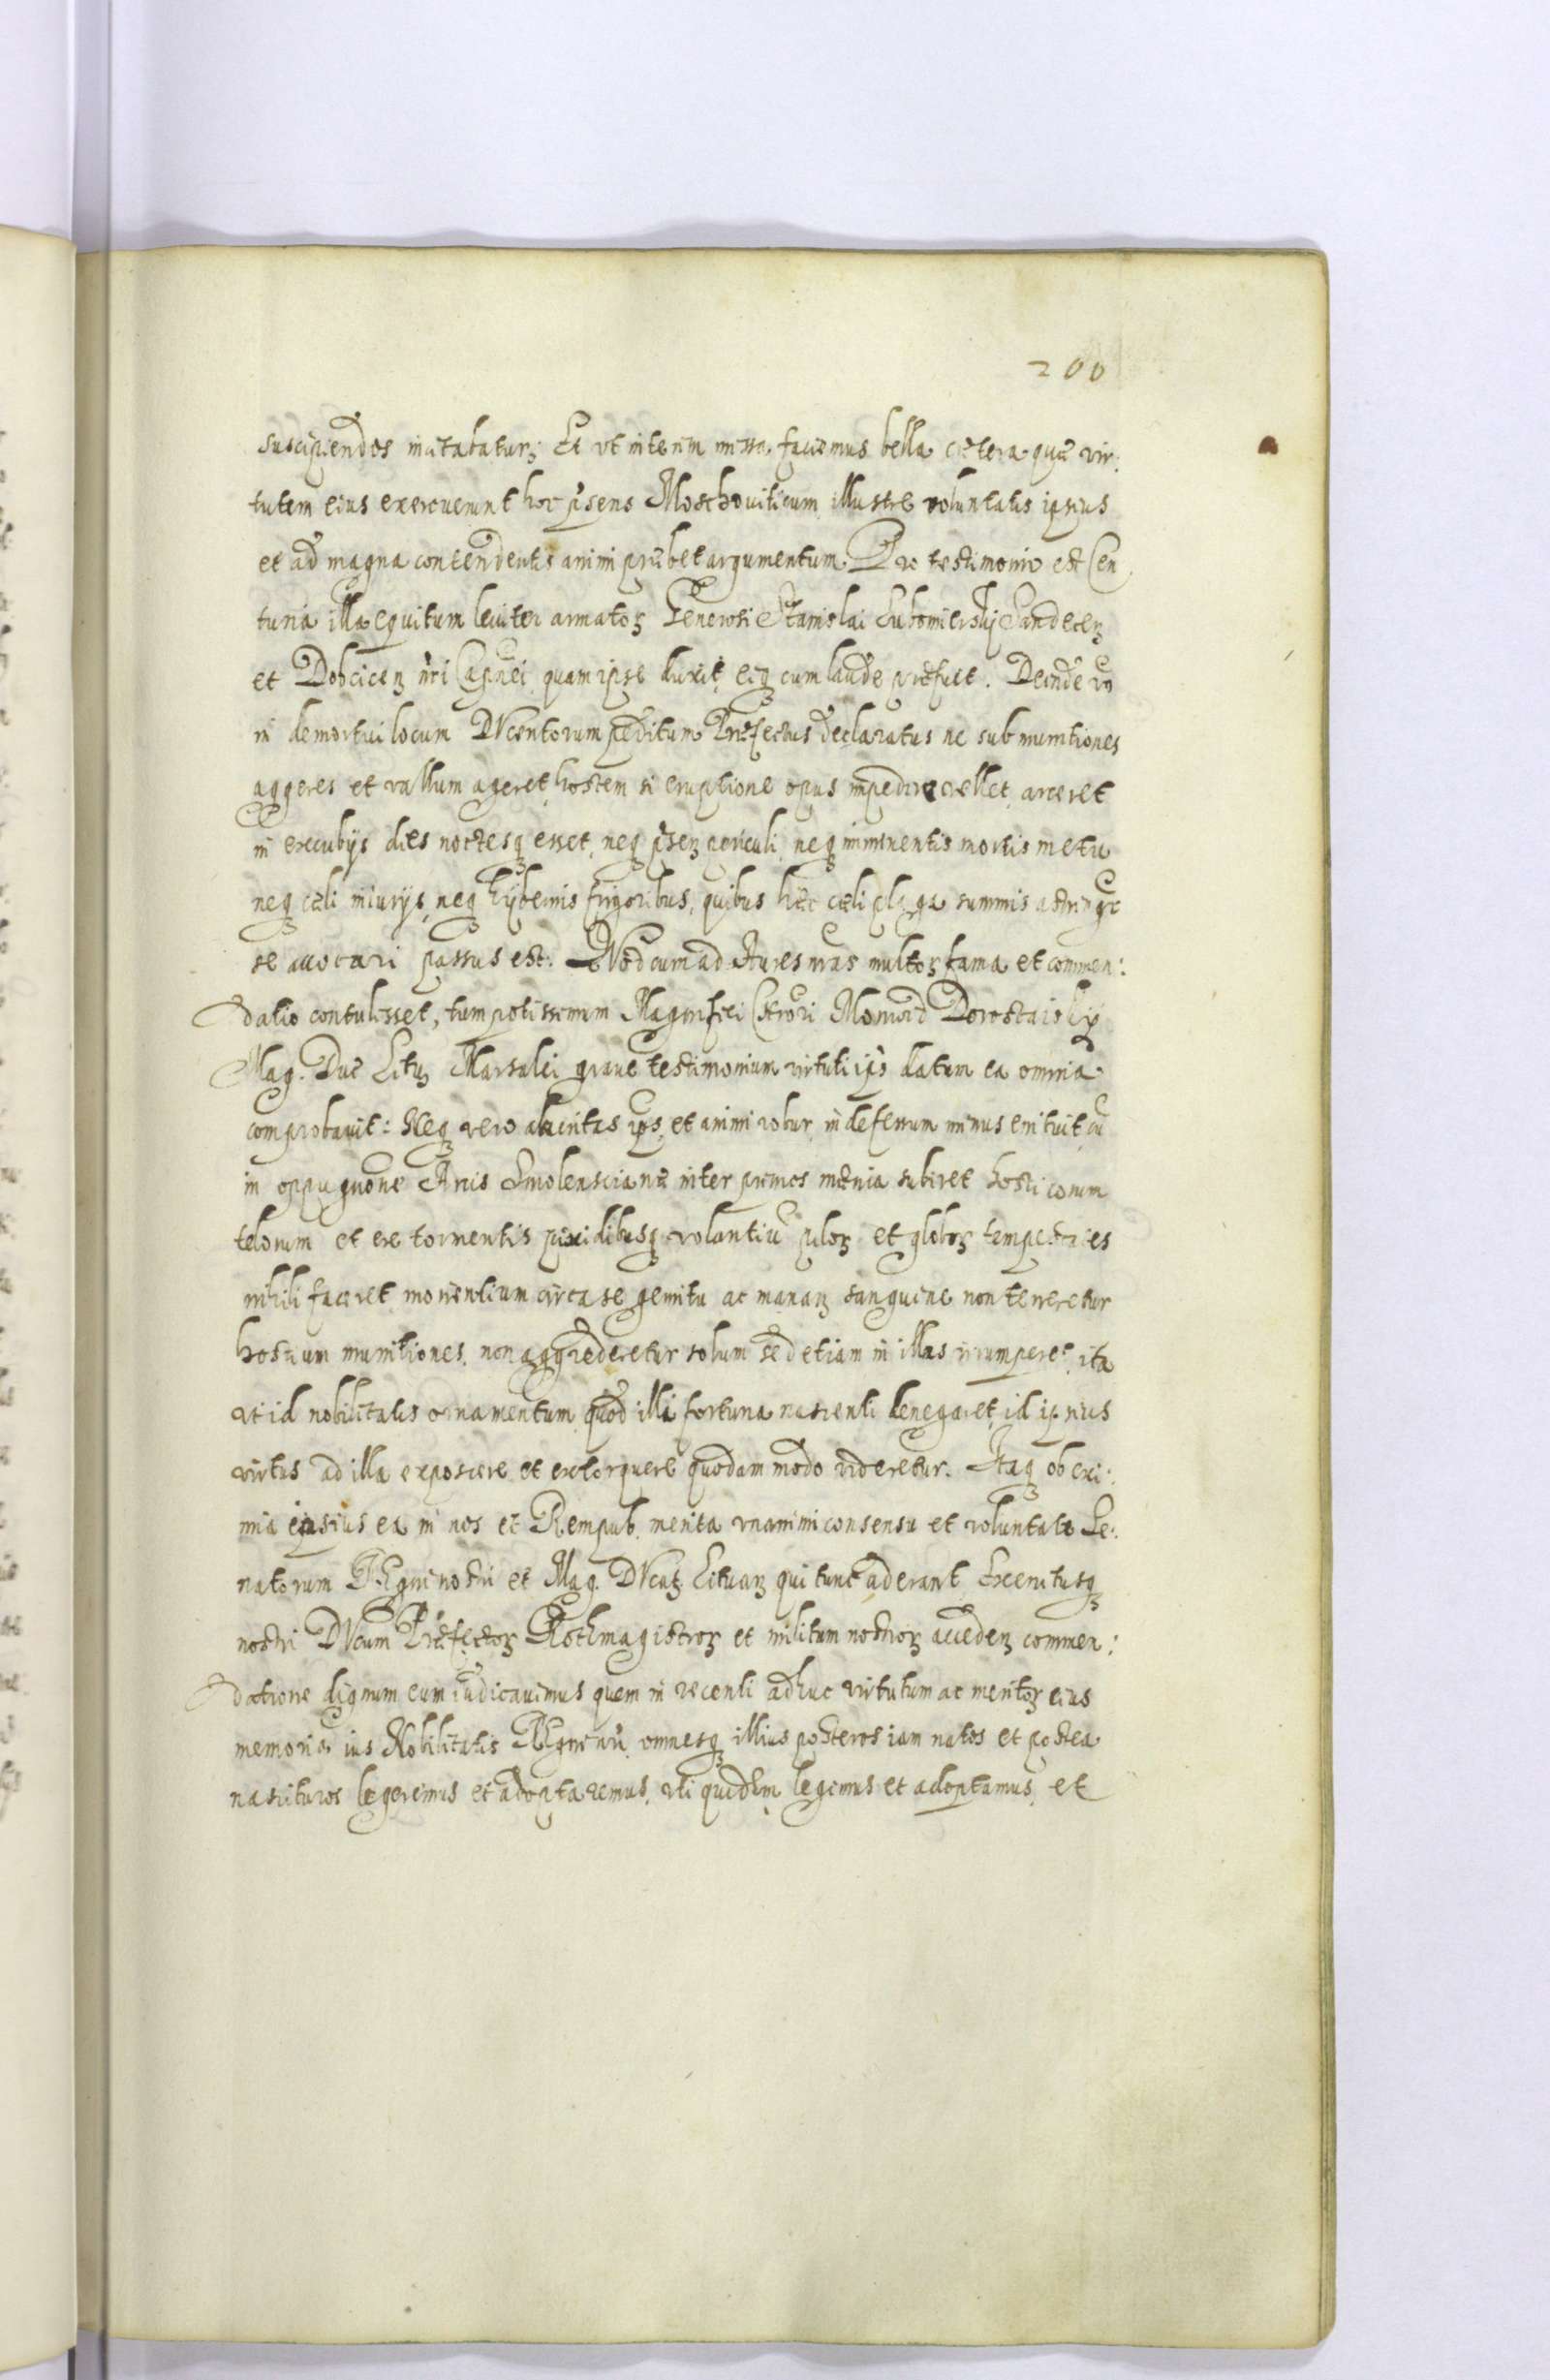 200
suscipiendos incitabatur; Et vt interim missa faciemus bella cætera quæ vir:
tutem eius exercuerunt hoc p̃sens Moschouiticum illustre voluntatis ipsius
et ad magna contendentis animi præbet argumentum. Pro testimonio est Cen
turia illa equitum leuiter armatoꝝ Generosi Stanislai Lubomierskij Sandecen̄
et Dobcicen̄ n̄ri Capnei quam ipse duxit, eiqꝫ cum laude præfuit. Deinde vo
in demortui locum DVcentorum peditum Præfectus declaratus ac sub munitiones
aggeres et vallum ageret, hostem si eruptione opus impedire vellet, arceret
in excubijs dies noctesqꝫ esset, neqꝫ p̃sen̄ periculi, neqꝫ imminentis mortis metu
neqꝫ cæli iniurijs, neqꝫ hÿbernis frigoribus, quibus hæc cæli plaga summis astringr̃
se auocari passus est. QVod cum ad Aures n̄ras multoꝝ fama et commen:
datio contulisset, tum potissimum Magnifici Chr̃ori Moniuid Dorostaiskÿ
Mag. Duc̄ Lituꝫ Marsalci graue testimonium virtuti ip̃s datum ea omnia
comprobauit: Neqꝫ vero alacritas ip̃s, et animi robur, indefessum minus enituit, cū
in oppugnōne Arcis Smolenscianæ inter primos mænia subiret hosticorum
telorum et ex tormentis pixidibusqꝫ volantiū piloꝝ et globoꝝ tempestates
nihili faceret morientium circa se gemitu ac manan̄ sanguine non terreretur
hostium munitiones, non aggrederetur solum sed etiam in illas irrumperet, ita
vt id nobilitatis ornamentum, quod illi fortuna nascenti denegaret, id ipsius
virtus ad illa exposcere et extorquere quodammodo videretur. Itaqꝫ ob exi:
mia ipsius ea in nos et Rempub. merita vnanimi consensu et voluntate Se:
natorum REgni nostri et Mag. DVcatꝫ Lituan̄ qui tunc aderant Exercitusqꝫ
nostri DVcum Præfectoꝝ Rothmagistroꝝ et militum nostroꝝ acceden̄ commen:
datione dignum eum iudicauimus quem in recenti adhuc virtutum ac meritoꝝ eius
memoria ius Nobilitatis REgni n̄ri omnesqꝫ illius posteros iam natos et postea
nascituros legeremus et adoptaremus, vti quidem legimus et adoptamus, et